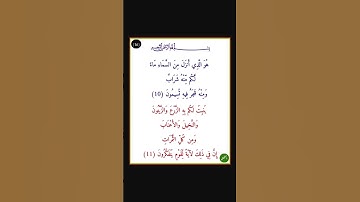 هُوَ الَّذِي أَنْزَلَ مِنَ السَّمَاءِ مَاءً
لَكُمْ مِنْهُ شَرَابٌ
وَمِنْهُ شَجَرٌ فِيهِ تُسِيمُونَ (10)
يُنْبِتُ لَكُمْ بِهِ الزَّرْعَ وَالزَّيْتُونَ
وَالنَّخِيلَ وَالْأَعْنَابَ
وَمِن كُلِّ الثَّمَرَاتِ
إِنَّ فِي ذَلِكَ لَآيَةً لِّقَوْمٍ يَتَفَكَّرُونَ (11)